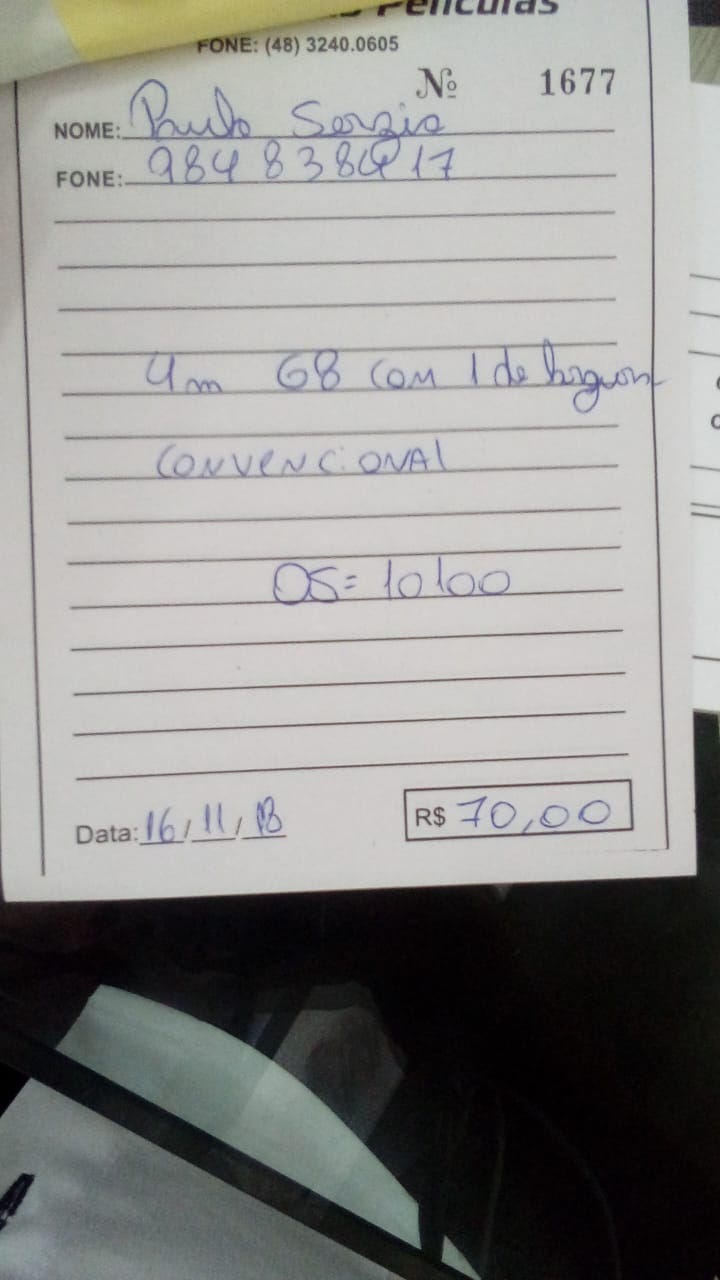 Películas
FONE: (48) 3240.0605
Nº 1677
NOME: Paulo Sergio
FONE: 984838417
4m 68 com 1 de largura
CONVENCIONAL
OS = 10100
Data: 16/11/18
R$ 70,00